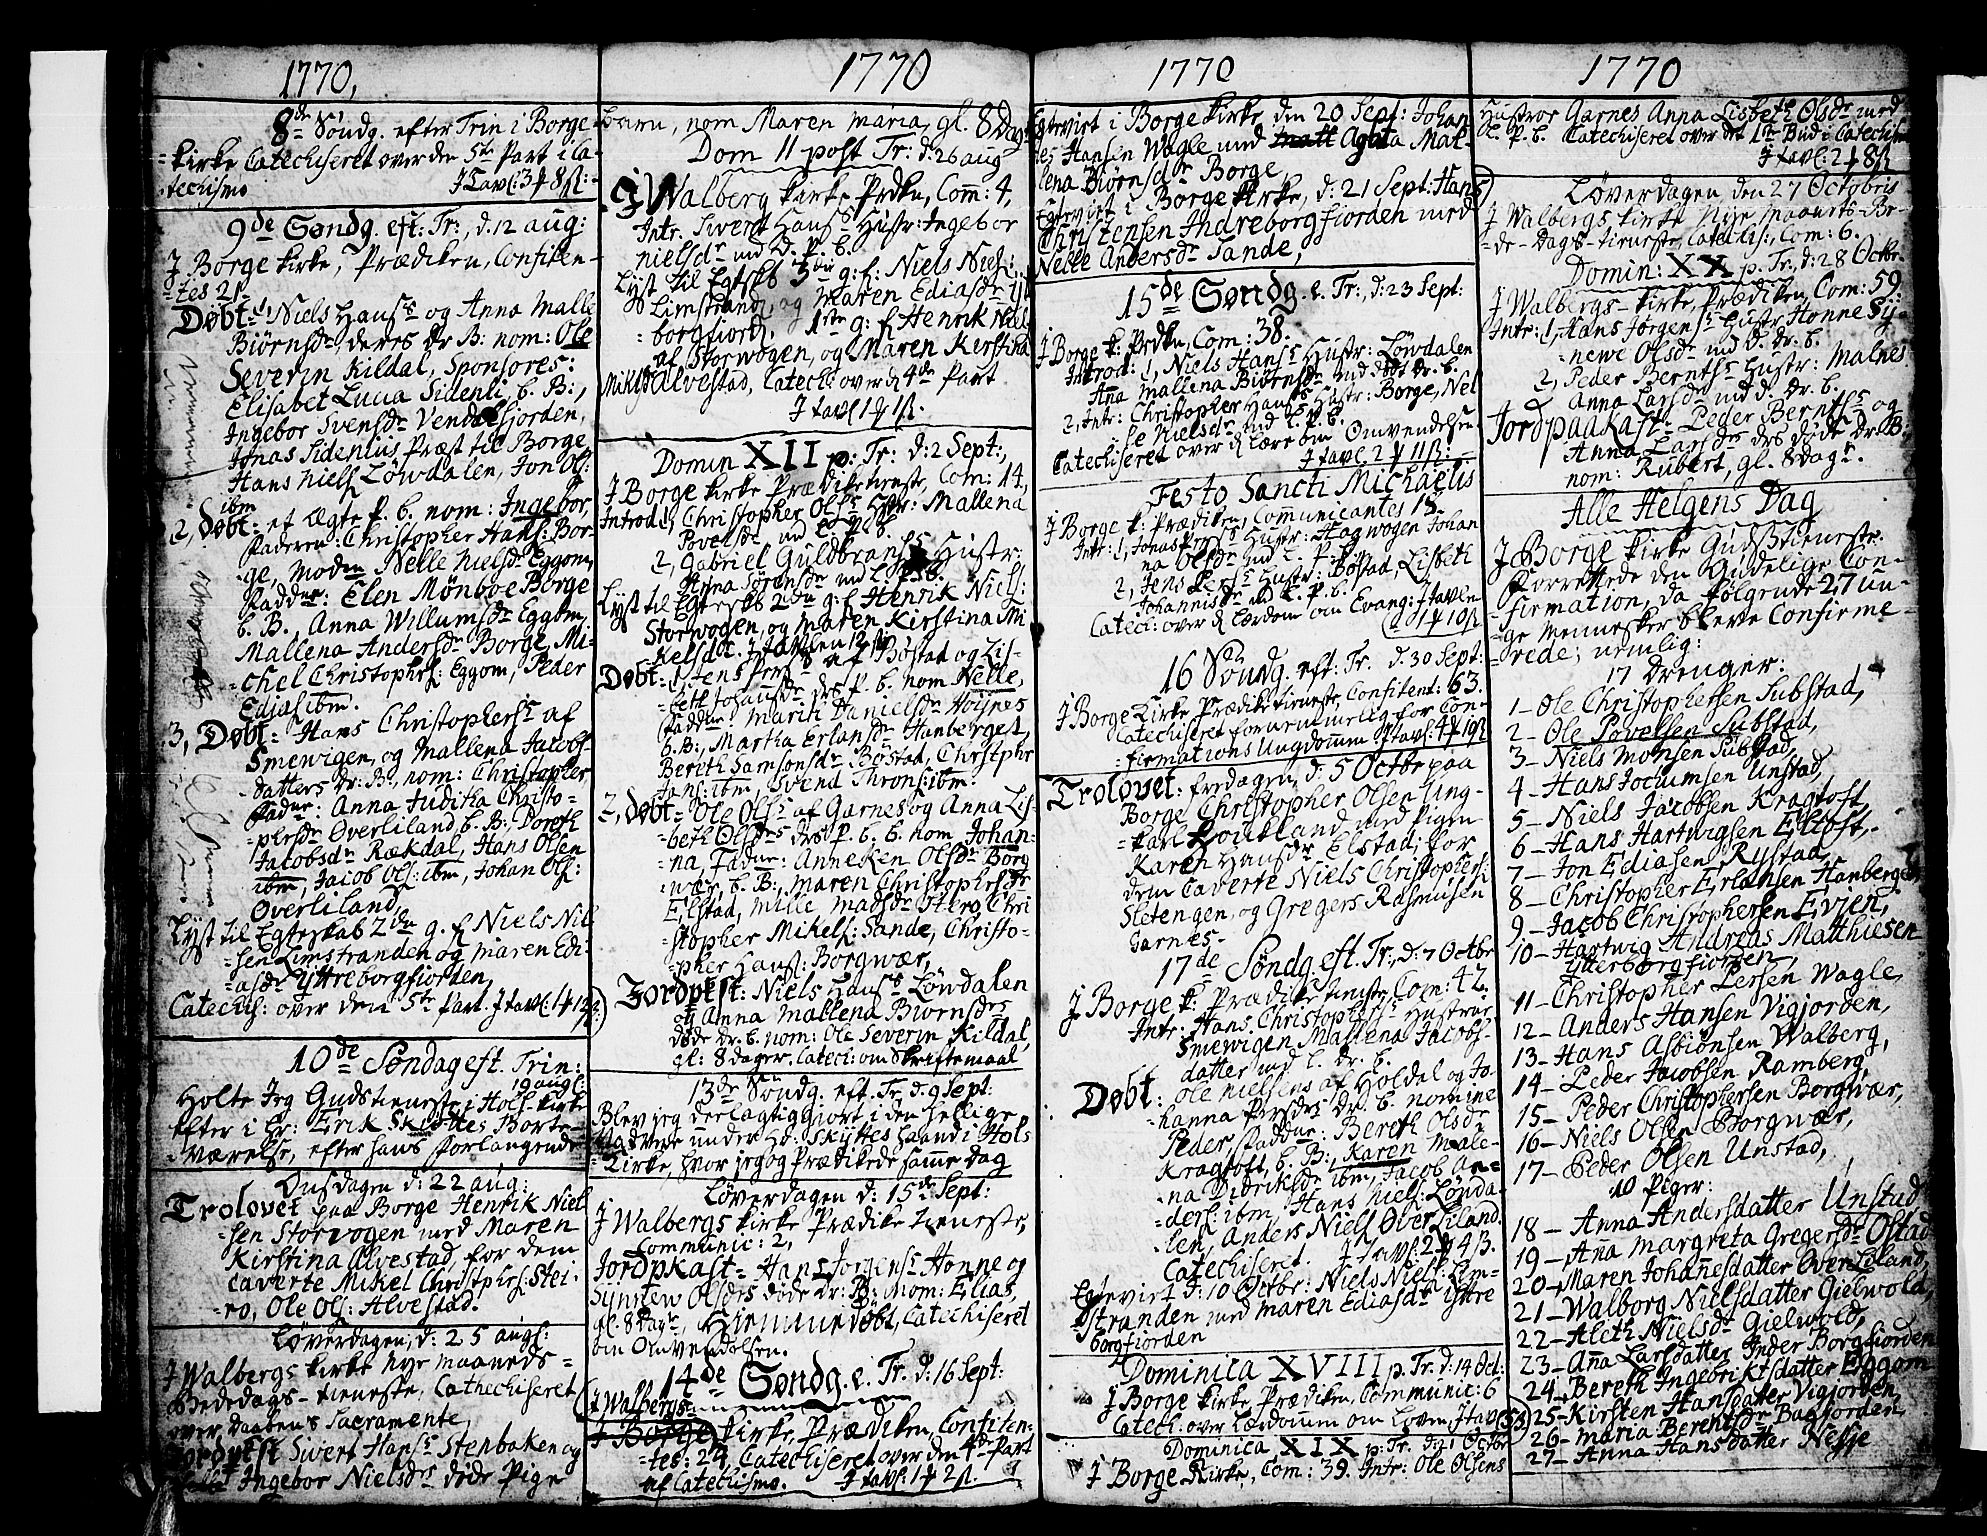 1770,
8de Søndg. efter Trin i Borge
kirke Catechiseret over den 5te Part i Ca-
techismo J Tavl: 3 ɟ 8 ß:
9de Søndg. eft: Tr:, d: 12 aug:
J Borge kirke, Prædiken, Confiten-
tes 21
Døbt: 1, Niels Hansß og Anna Malle
Biørnsdr, deres Dr B: nom: Ole
Severin Kildal, Sponsores:
Elisabet Lucia Sidenli b. B:,
Ingebor Svensdr Vendelsfjorden,
Jonas Sidenius Præst til Borge
Hans Nielß Løwdalen, Jon Olß:
ibm
2, Døbt: et Ægte P. b. nom: Ingebor,
Faderen: Christopher Hansß: Bor-
ge, Modn Nelle Nielsdr Eggom,
Faddr: Elen Mønboe Borge
b. B., Anna Willumsdr Eggom,
Mallena Andersdr Borge, Mi-
chel Christophrß: Eggom, Peder
Ediasß ibm.
3, Døbt: Hans Christophersß af
Smewigen, og Mallena Jacobs-
datters Dr. B:, nom: Christopher,
Faddr: Anna Juditha Christo-
phrsdr Overliland, b. B:, Doreth
Jacobsdr Rækdal, Hans Olsen
ibm, Jacob Olß: ibm, Johan Olß:
Overliland,
Lyst til Egteskab 2den g. f Niels Niel
sen Limstranden og Maren Edi-
asdr Yttreborgfiorden,
Catechiß: over den 5te Part. J tavl: 1 ɟ 12 ß:
10de Søndag eft. Trin:
19 augß:
Holte Jeg Gudstieneste i Hols-kirke
efter i Hr: Erik Skÿttes Borte-
værelse, efter hans forlangende
Onsdagen d: 22 aug:
Trolovet paa Borge Henrik Niel
sen Storvogen med Maren
Kirstina Alvestad, for dem
caverte Mikel Christophrß: Stei-
ro, Ole Olß: Alvestad.
Løverdagen, d: 25 augß:
J Walbergs kirke nye maaneds-
Bededags-tieneste, Cathechiseret
over Daabens Sacramente,
Jordpkst Swert Hansß Stenbaken og
Ingebor Nielsdrs døde Pige
1770
barn, nom Maren Maria, gl. 8 Dagr
Dom 11 post Tr: d: 26 aug
J Walberg kirke Prdkn, Com: 4,
Intr: Swert Hansß Hustr: Ingebor
Nielsdr md d: P. b.
Lyst til Egtskb 3die g: f: Niels Nielß:
Limstrand, og Maren Ediasdr ytr
borgfiord, 1ste g: f Henrik Niels
af Storwogen, og Maren Kirstina
Miklsdr Alvestad, Catech: over d 4de Part
J tavl 1 ɟ 1 ß.
Domin XII p: Tr: d: 2 Sept:,
J Borge kirke Prædiketieneste, Com: 14,
Introd: 1, Christopher Olsß Hstr: Mallena
Povelsdr md l. P. b.
2, Gabriel Guldbransß Hustr:
Anna Sørensdr md l P. b.
Lyst til Egteskb 2den g: f Henrik Nielß:
Storwogen, og Maren Kirstina Mi
kelsdr. J tavlen 12 ß
Døbt: 1, Jens Persß af Bøstad og Lis-
beth Johansdr drs P. b. nom Nelle,
Faddr: Marit Danielsdr Høÿnes
b. B:, Martha Erlansdr Hanberget,
Bereth Samsonsdr Bøstad, Christphr
Jansß: ibm, Svend Thronsß: ibm.
2, Døbt: Ole Olsß af Garnes og Anna Lis-
beth Olsdrs drs P. b. nom Johan-
na, Faddr: Anneken Olsdr Borg
wær, b. B:, Maren Christophrsdr
Elstad, Mille Madsdr Hero, Chri
stopher Mikelß: Sande, Christo-
pher Hansß: Borgwær,
Jordpkst: Niels Hansß Løwdalen
og Anna Mallena Biørnsdrs
døde Dr. b. nom: Ole Severin Kildal,
gl: 8 dager. Catech: om Skriftemaal
13de Søndg. eft. Tr. d: 9 Sept:
Blev jeg deelagtiggiort i den hellige
Nadvere under Hd: Skÿttes haand i Hols
Kirke, hvor jeg og Prædikede samme dag
Løverdagen d: 15de Sept:
J Walbergs kirke Prædike tieneste,
Communic: 2,
Jordpkast= Hans Jorgensß Honne og
Synnew Olsdrs døde Dr: B: nom: Elias,
gl: 8 dagr, Hiemmedøbt, Catechiseret
om Omvendelsen.
14de Søndg. e. Tr. d: 16 Sept:
J Walbergs
J Borge kirke, Prædiken, Confiten-
tes: 24, Catechiseret over den 4de Part
af Catechismo. J tavl: 1 ɟ 2 ß.
1770
Egtevirt i Borge kirke, den 20 Sept: Johan
nes Hansen Wagle md Agata Mal-
lena Biørnsdr Borge,
Egtevirt i Borge kirke, d: 21 Sept: Hans
Christensen Indreborgfiorden med
Nelle Andersdr Sande,
15de Søndg. e. Tr:, d: 23 Sept:
J Borge k: Prdkn, Com: 38.
Introd: 1, Niels Hansß Hustr: Løwdalen
Aña Mallena Biørnsdr md dødt Dr. b.
2, Intr: Christopher Hansß Hustr: Borge, Nel
le Nielsdr md l. P. b.
Catechiseret over d Lære om Omvendelsen
J tavl 2 ɟ 11 ß:
Festo Sancti Michaelis
J Borge k: Prædiken, Comunicantes 15.
Intr: 1, Jonas Persß Hustr: Hagwogen Johan
na Olsdr md l. P. b.
2, Jens Persß Hustr: Bøstad, Lisbeth
Johannisdr md l. P. b.
Catech: over d Lærdom om Evang: J tavlen
1 ɟ 10 ß
16 Søndg. eft: Tr. d: 30 Sept:
J Borge Kirke Prædiketieneste, Confitent: 63.
Catechiseret fornemmelig for Con-
firmations Ungdommen J tavl: 4 ɟ 19 ß
Trolovet: fredagen, d: 5 Octbr paa
Borge Christopher Olsen Ung-
karl Rockland med Pigen
Karen Hansdr Elstad; for
dem Caverte Niels Christophersß:
Sletengen, og Gregers Rasmusen
Garnes-
17de Søndg. eft. Tr:, d: 7 Octbr
J Borge k: Prædike tieneste, Com: 42.
Intr: Hans Christophersß Hustrue
Smewigen Mallena Jacobs-
datter md l. Dr. b.
Døbt: Ole Nielsens af Holdal og Jo-
hanna Persdrs Dr. b. nomine
Peder, Faddr: Bereth Olsdr
Kragtoft, b. B:, Karen Male-
na Didriksdr ibm, Jacob An-
dersß: ibm, Hans Nielß: Lønda-
len, Anders Nielß Over Liland.
Catechiseret. J tavl: 2 ɟ 4 ß.
Egtevirt d: 10 Octbr: Niels Nielß: Lim-
stranden med Maren Ediasdr Yttre
borgfiorden
Dominica XVIII p. Tr. d: 14 Oct:
J Borge kirke, Prædiken, Communic: 6
Catecl: over Lærdomen om Loven, J tav: 33 ß
Dominica XIX p: Tr: d: 21 Octbr
J Borge Kirke, Com: 39. Intr: Ole Olsens
1770
Hustroe Garnes Anna Lisbeth Olsdr med
l. P. b. Catechiseret over det 1te Bud i Catechism
J tavl: 2 ɟ 8 ß
Løverdagen den 27 Octobris
J Walbergs kirke Nye Maaneds-Be-
de-Dags-tieneste, Catechisß:, Com: 6.
Domin: XX p. Tr:, d: 28 Octbr.
J Walbergs-kirke, Prædiken, Com: 59
Intr: 1, Hans Jørgensß Hustr Honne Sÿ-
newe Olsdr md d. Dr. b.
2, Peder Berntsß Hustr: Malnes
Anna Larsdr md d. Dr. b.
Jordpaakast: Peder Berntsß og
Anna Larsdrs drs døde Dr. B:
nom: Rubert, gl. 8 dagr.
Alle Helgens Dag
J Borge kirke Gudstieneste.
Forrettede den Gudelige Con-
firmation, da følgende 27 un-
ge mennesker bleve Confirme-
rede; nemlig:
17 Drenger:
1- Ole Christophersen Substad,
2- Ole Povelsen Substad,
3- Niels Monsen Substad,
4- Hans Jocumsen Unstad,
5- Niels Jacobsen Kragtoft,
6- Hans Hartvigsen Eltoft,
7- Jon Ediasen Rystad,
8- Christopher Erlansen Hanberget
9- Jacob Christophersen Evjen,
10- Hartwig Andreas Matthiesen
Ytterborgfiorden,
11- Christopher Persen Wagle,
12- Anders Hansen Vigjorden,
13- Hans Asbiønsen Walberg,
14- Peder Jacobsen Ramberg,
15- Peder Christophersen Borgwær,
16- Niels Olsen Borgwær,
17- Peder Olsen Unstad,
10 Piger:
18- Anna Andersdatter Unstad
19- Aña Margreta Gregersdr Olstad
20- Maren Johañesdatter Over Liland,
21- Walborg Nielsdatter Gielwold,
22- Aleth Nielsdr Gielwold,
23- Aña Larsdatter Inder Borgfiorden
24- Bereth Ingebriktsdatter Eggom
25- Kirsten Hansdatter Vigjorden,
26- Maria Berentsdr Bagjorden,
27- Anna Hansdatter Nesje